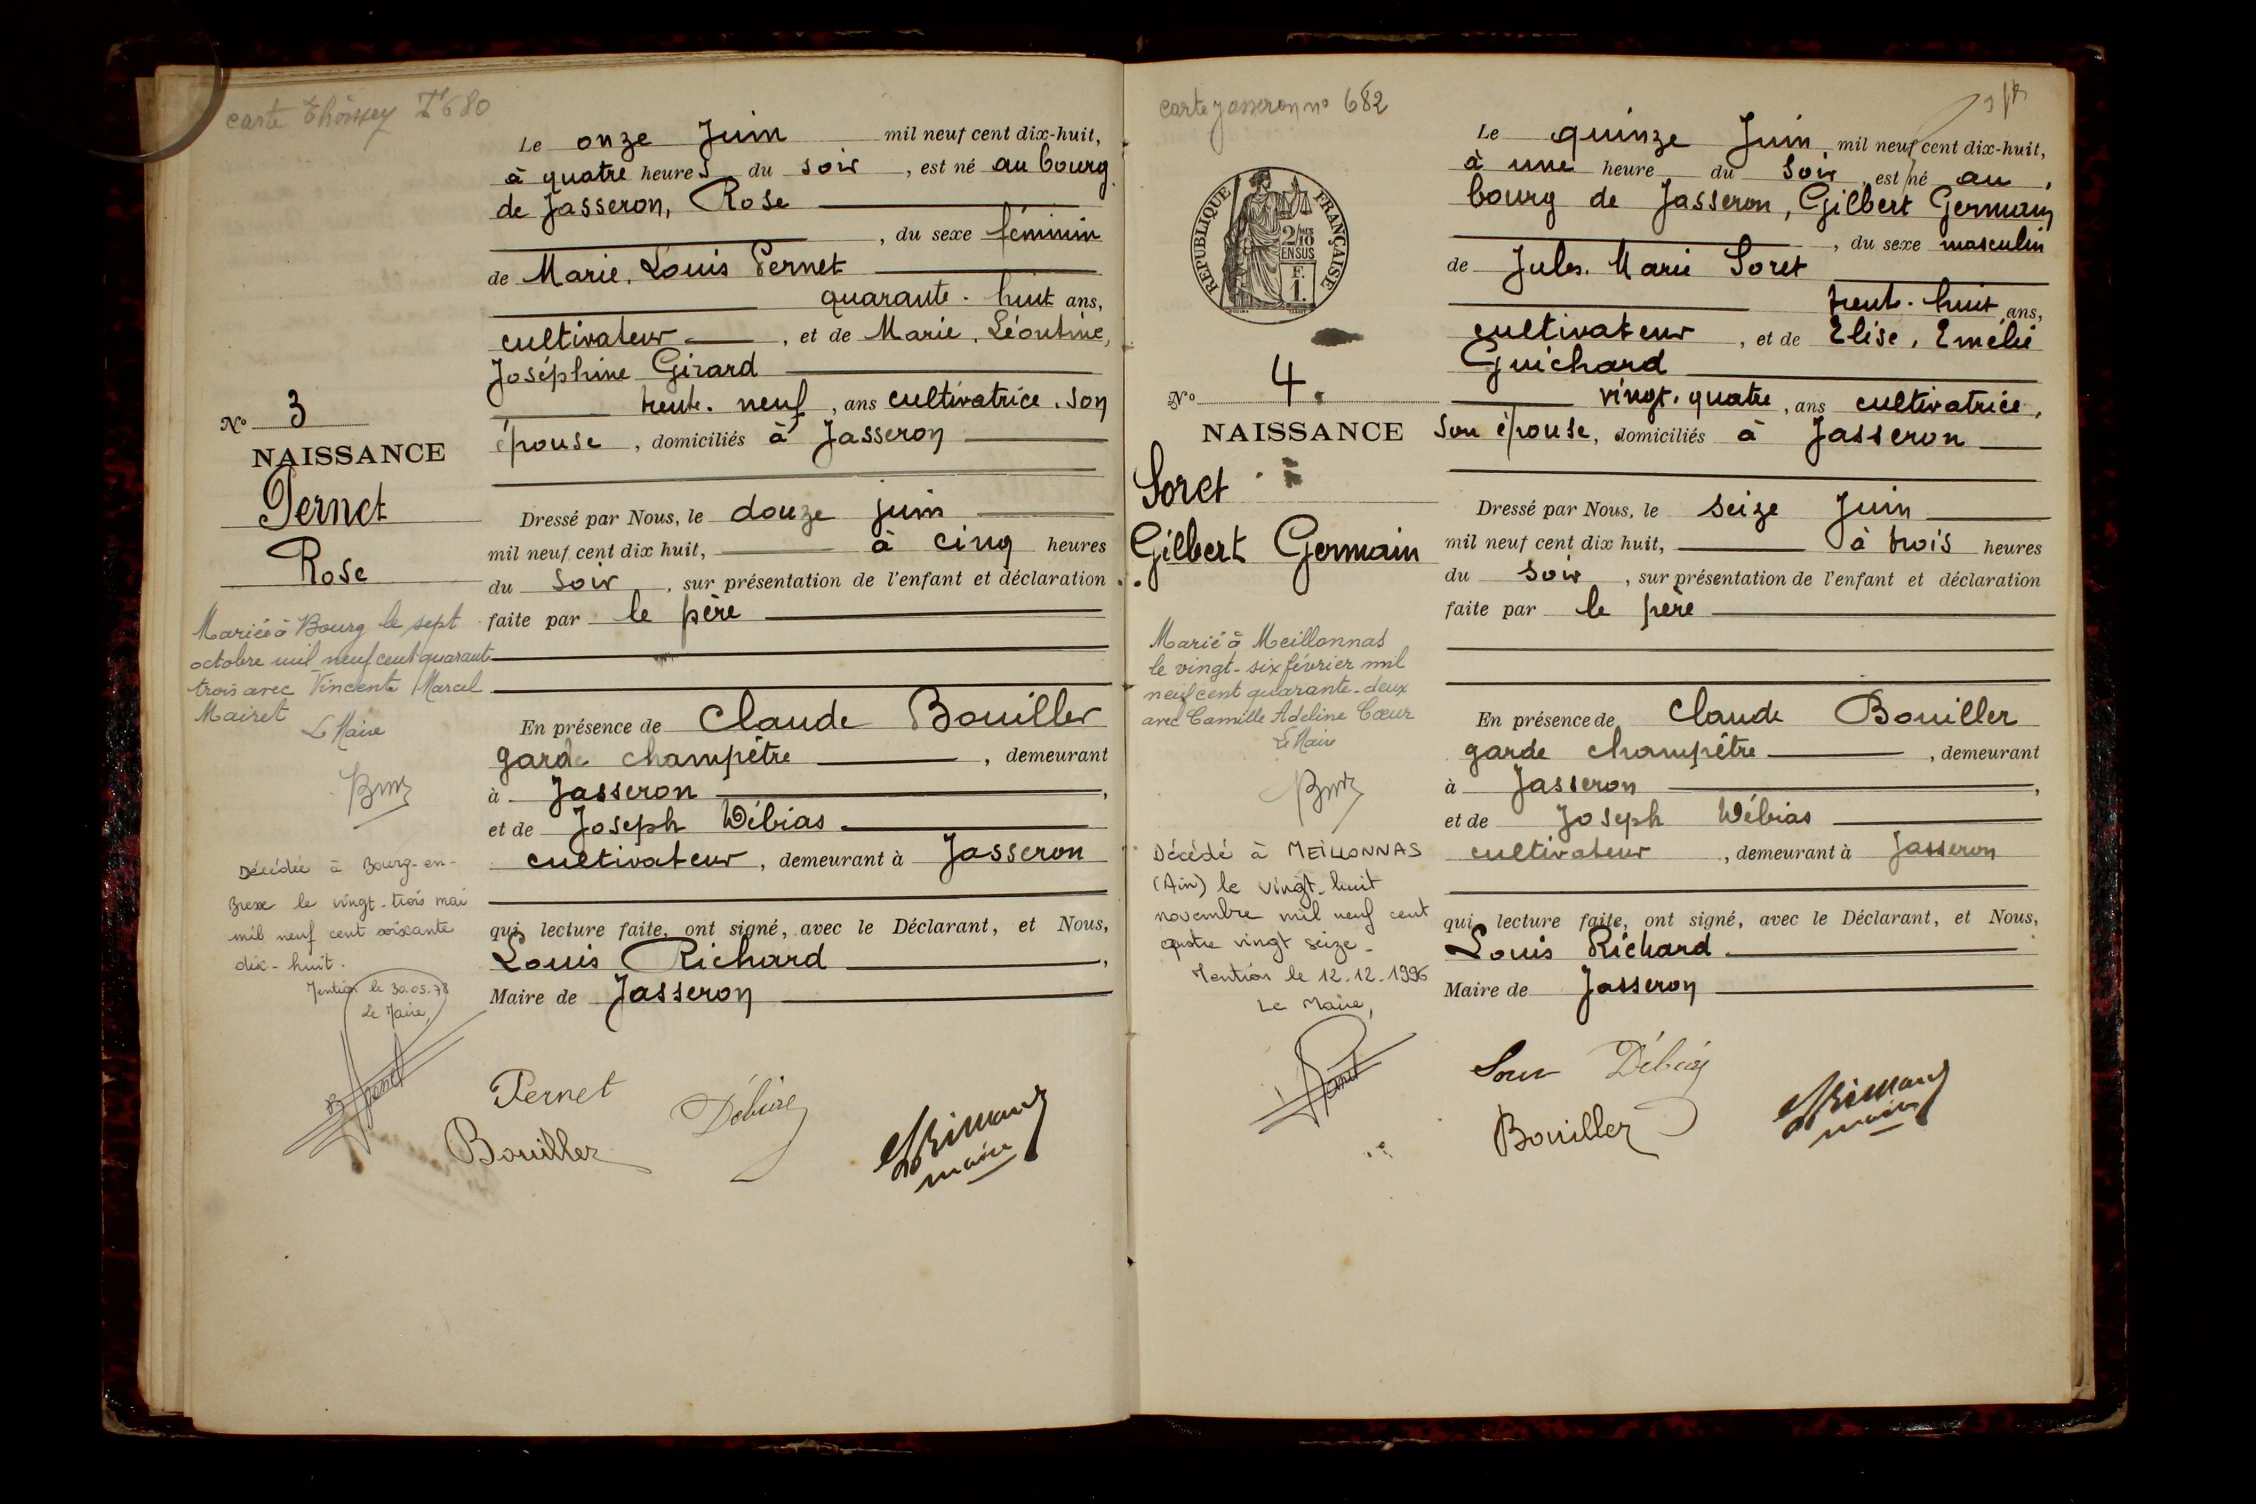 carte Thoissey N° 680
Le onze Juin mil neuf cent dix-huit,
à quatre heures du soir, est né au bourg
de Jasseron, Rose
, du sexe féminin
de Marie, Louis Pernet
quarante-huit ans,
cultivateur, et de Marie, Léontine,
Joséphine Girard
trente-neuf, ans cultivatrice, son
épouse, domiciliés à Jasseron
N° 3
NAISSANCE
Pernet
Rose
Dressé par Nous, le douze juin
mil neuf cent dix huit, à cinq heures
du soir, sur présentation de l'enfant et déclaration
faite par le père
Mariée à Bourg le sept
octobre mil neuf cent quarante
trois avec Vincent Marcel
Mairet
Le Maire
En présence de Claude Bouiller
garde champêtre, demeurant
à Jasseron,
et de Joseph Débias
cultivateur, demeurant à Jasseron
qui, lecture faite, ont signé, avec le Déclarant, et Nous,
Louis Richard,
Maire de Jasseron
Décédée à Bourg-en-
Bresse le vingt-trois mai
mil neuf cent soixante
dix-huit.
Mention le 30.05.78
Le Maire,
Pernet
Bouiller
maire
carte Jasseron n° 682
REPUBLIQUE FRANÇAISE
2/10 EN SUS
F.
1.
Le quinze Juin mil neuf cent dix-huit,
à une heure du soir, est né au
bourg de Jasseron, Gilbert Germain
, du sexe masculin
de Jules, Marie Soret
trente-huit ans,
cultivateur, et de Elise, Emélie
Guichard
vingt-quatre, ans cultivatrice,
son épouse, domiciliés à Jasseron
N° 4.
NAISSANCE
Soret
Gilbert Germain
Dressé par Nous, le seize Juin
mil neuf cent dix huit, à trois heures
du soir, sur présentation de l'enfant et déclaration
faite par le père
Marié à Meillonnas
le vingt-six février mil
neuf cent quarante-deux
avec Camille Adeline Cœur
Le Maire
En présence de Claude Bouiller
garde champêtre, demeurant
à Jasseron,
et de Joseph Débias
cultivateur, demeurant à Jasseron
qui, lecture faite, ont signé, avec le Déclarant, et Nous,
Louis Richard
Maire de Jasseron
Décédé à MEILLONNAS
(Ain) le vingt-huit
novembre mil neuf cent
quatre vingt seize.
Mention le 12.12.1996
Le Maire,
Bouiller
maire